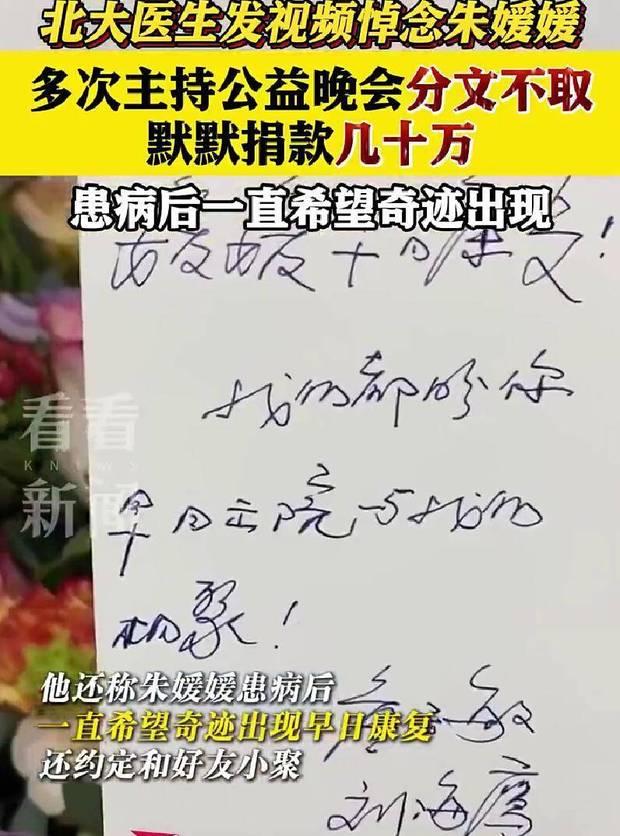 北大医生发视频悼念朱媛媛
多次主持公益晚会分文不取
默默捐款几十万
患病后一直希望奇迹出现
媛媛早日康复!
我们都盼你
看看
KNEWS
新闻
早日出院与我们
相聚!
他还称朱媛媛患病后
一直希望奇迹出现早日康复
还约定和好友小聚
敏
刘海鹰